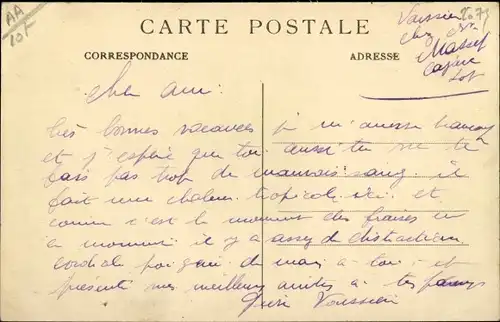 AA
10f
CARTE POSTALE
CORRESPONDANCE
ADRESSE
Vaissier
chez Mr
Massip
Cajarc
Lot
cher ami.
Très bonnes vacances je m'amuse beaucoup
et j'espère que toi aussi tu ne te
fais pas trop de mauvais sang. il
fait une chaleur tropicale ici et
comme c'est le moment des fraises en
ce moment il y a assez de distraction
cordiale poignée de main à toi et
présente mes meilleurs amitiés à tes parents
Vaissier